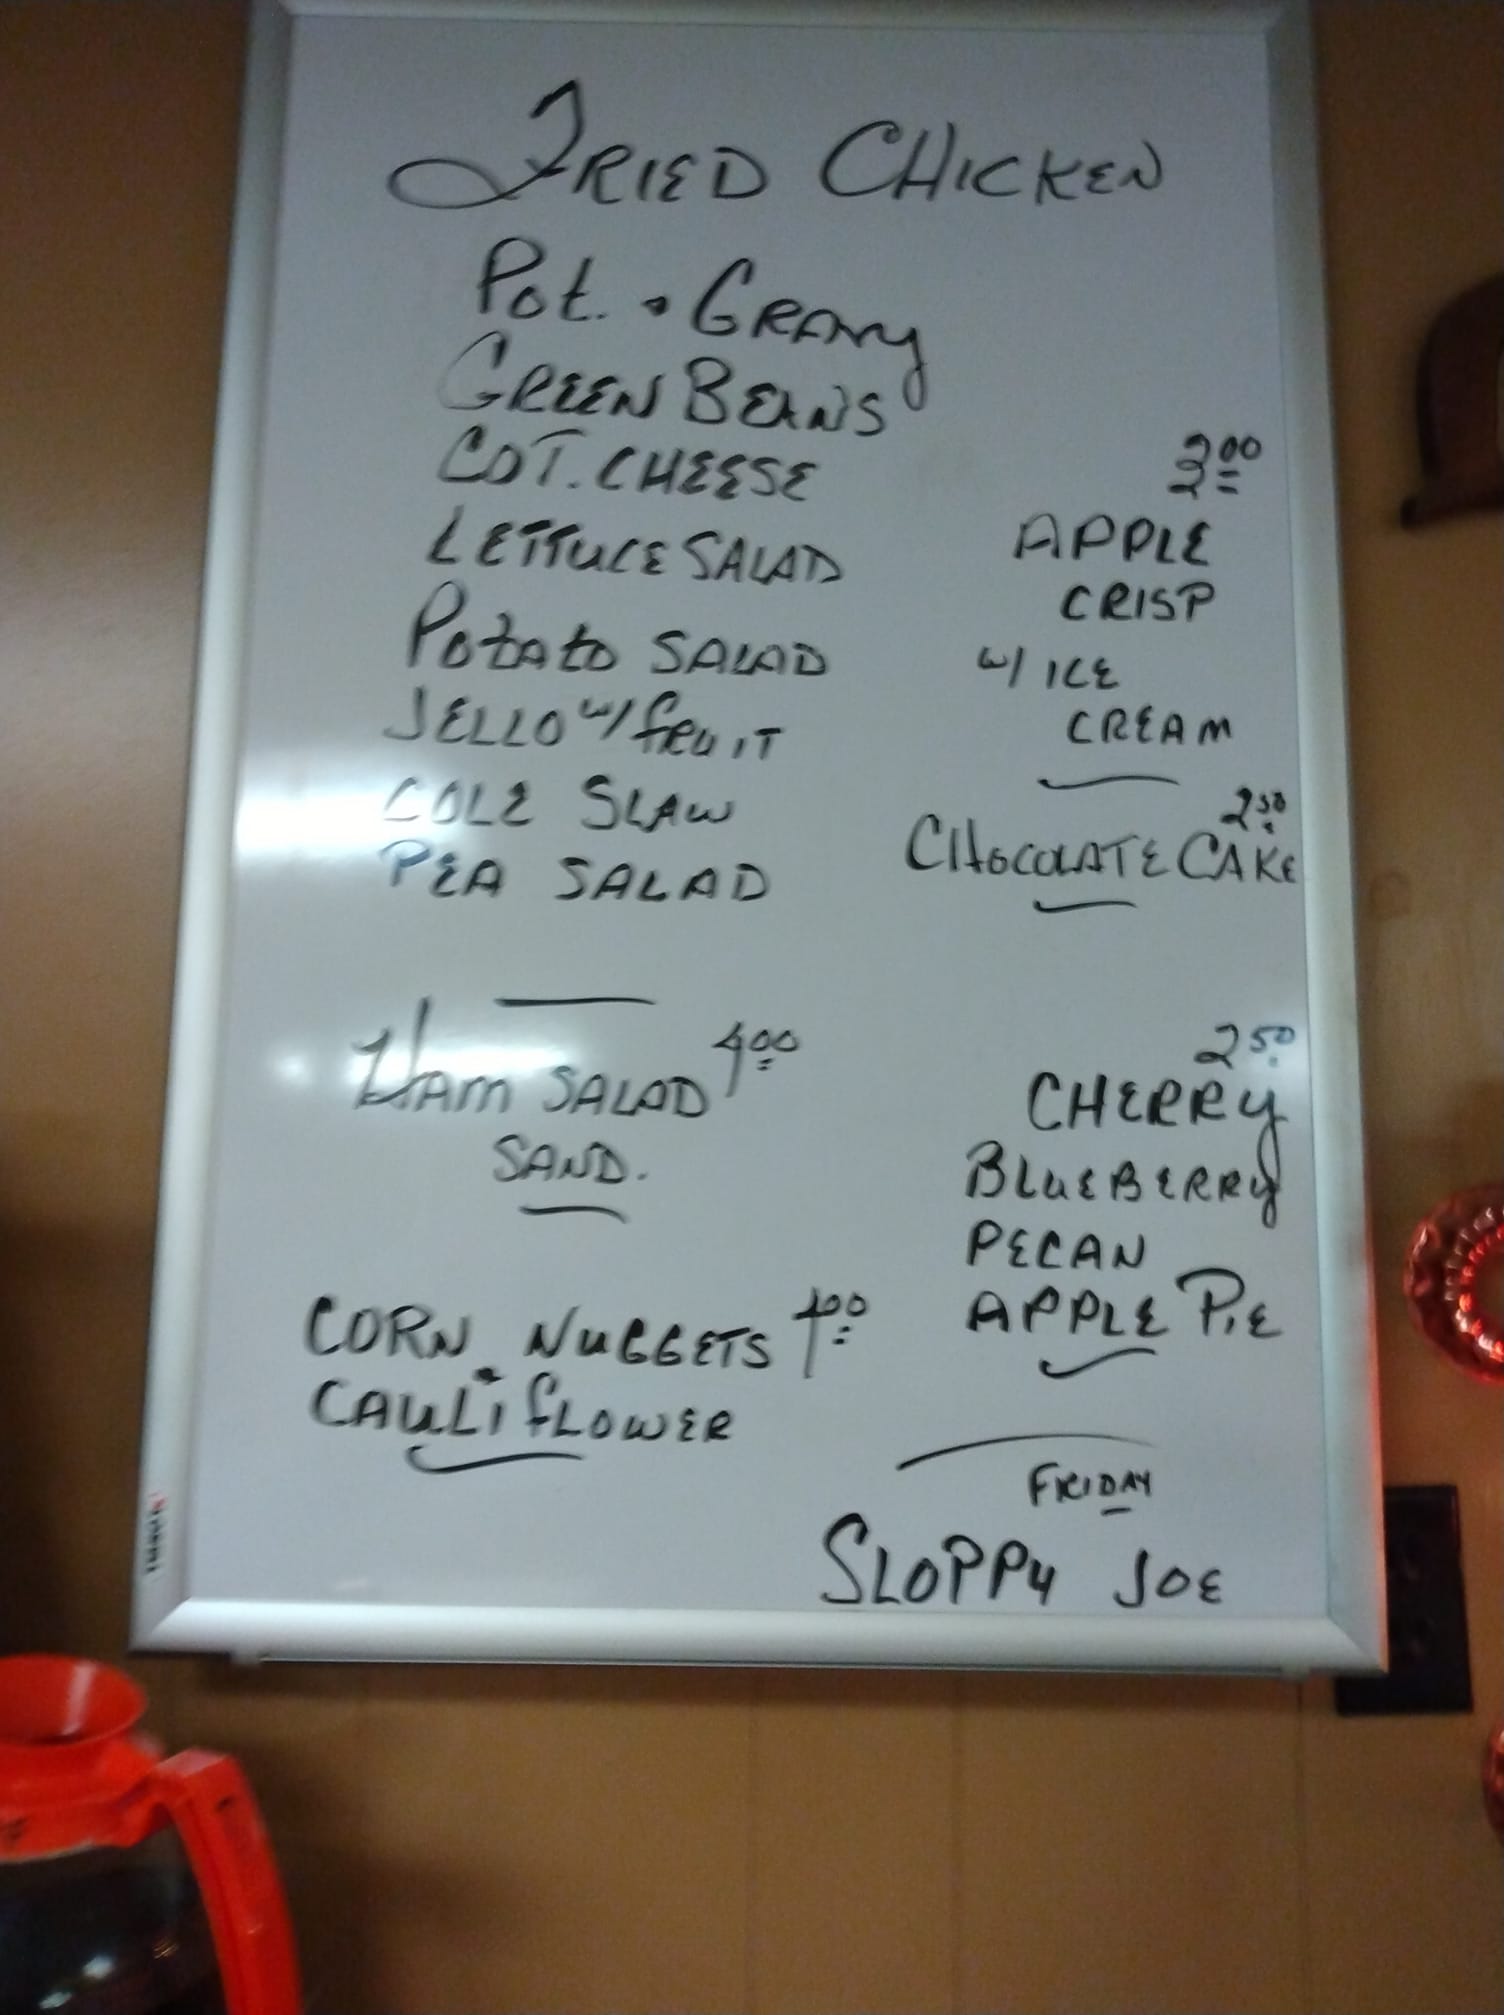 FRIED CHICKEN
Pot. & GRAVY
GREEN BEANS
COT. CHEESE
LETTUCE SALAD
Potato SALAD
JELLO w/ fRUIT
COLE SLAW
PEA SALAD
HAM SALAD 4.00
SAND.
CORN NUGGETS 4.00
CAULiflOWER
3.00
APPLE
CRISP
w/ ICE
CREAM
2.50
CHOCOLATE CAKE
2.50
CHERRY
BLUEBERRY
PECAN
APPLE PiE
FRIDAY
SLOPPY JOE